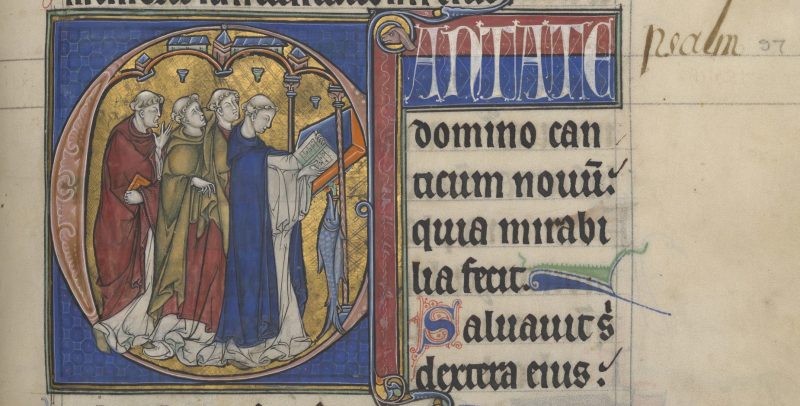 psalm 97
CANTATE
domino can
ticum nouū:
quia mirabi
lia fecit.
Saluauit s̓
dextera eius: